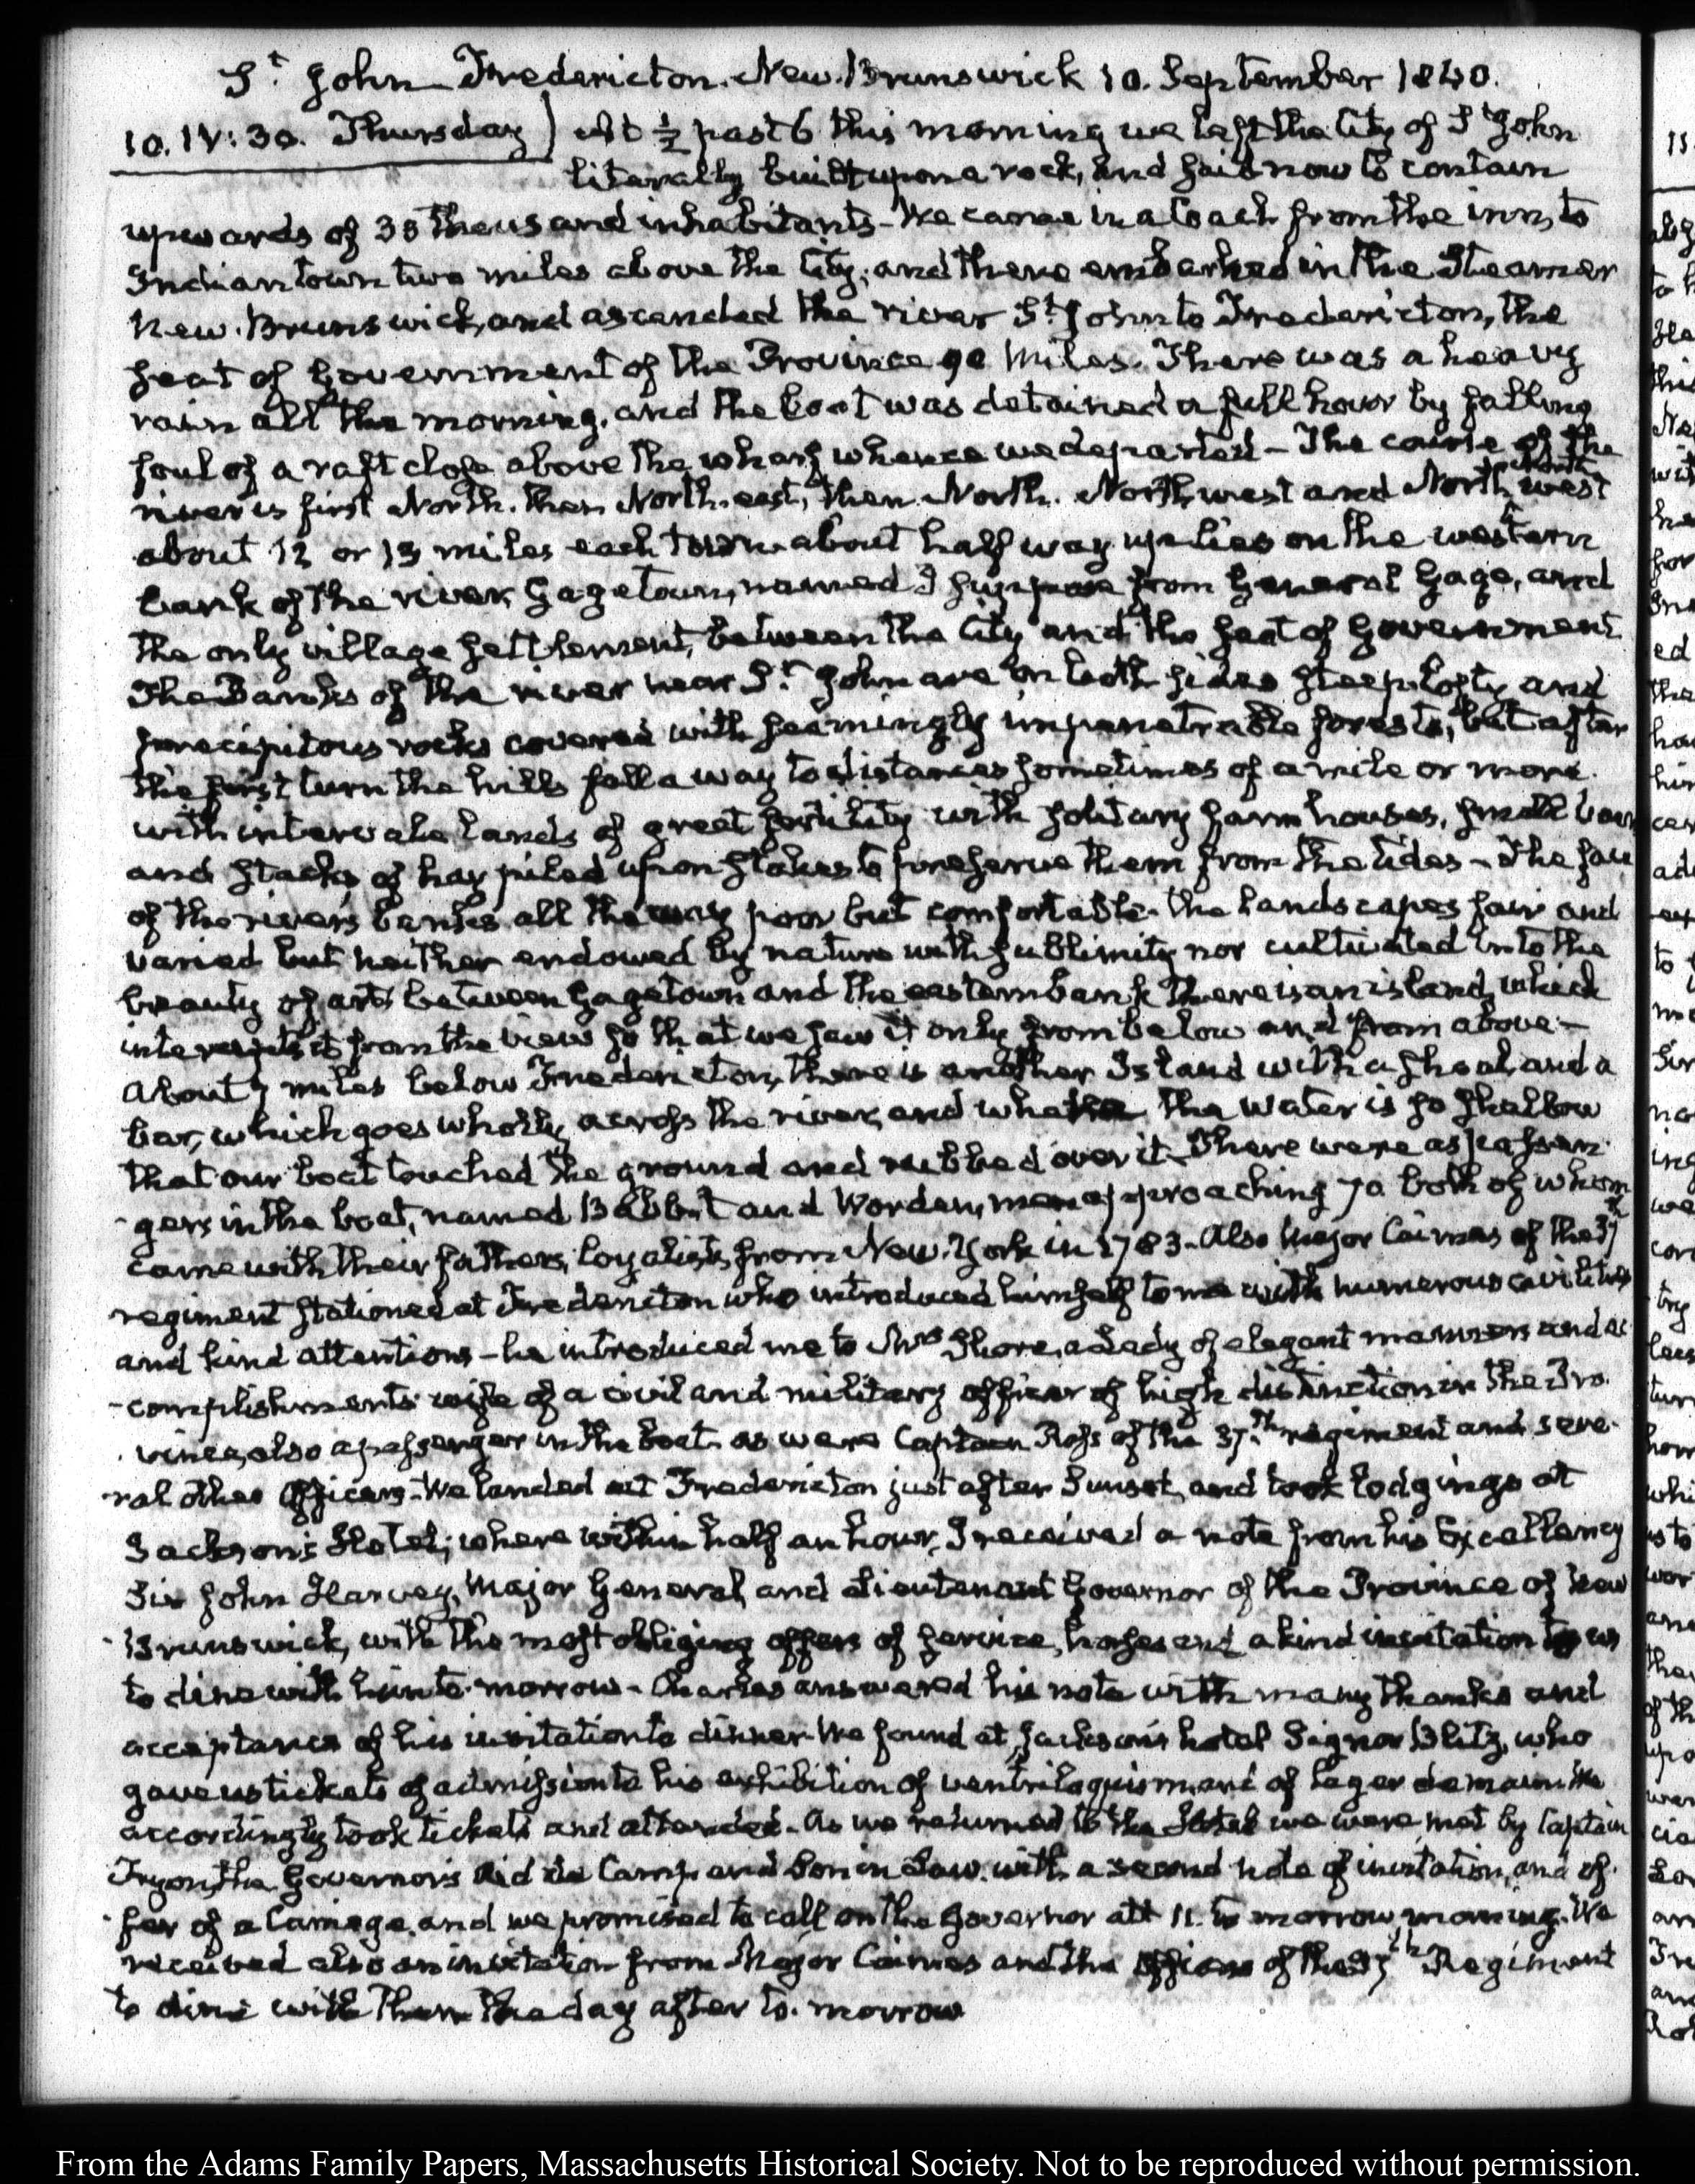 St. John Fredericton. New. Brunswick 10. September 1840.
10. IV: 30. Thursday) At ½ past 6 this morning we left the City of St. John
literally built upon a rock, and said now to contain
upwards of 30 thousand inhabitants - We came in a Coach from the inn, to
Indian town two miles above the City, and there embarked in the Steamer
New. Brunswick, and ascended the river St. John to Fredericton, the
seat of Government of the Province 90 Miles. There was a heavy
rain all the morning, and the boat was detained a full hour by falling
foul of a raft close above the wharf whence we departed - The course of the
river is first North. then North. east, then North. North, west and North west
about 12 or 15 miles each turn about half way up lies on the western
bank of the river, Gagetown, named I suppose from General Gage, and
the only village settlement, between the City and the seat of Government.
The Banks of the river near St. John are on both sides steep, lofty and
precipitous rocks covered with seemingly impenetrable forests, but after
the first turn the hills fall away to distances sometimes of a mile or more.
with intervale lands of great fertility with solitary farm houses, small
and stacks of hay piled upon stakes to preserve them from the tides - The
of the river's banks all the way poor but comfortable. the landscapes fair and
varied but neither endowed by nature with sublimity nor cultivated into the
beauty of art, between Gagetown and the eastern bank there is an island, which
intercepts it from the view so that we saw it only from below and from above -
About 7 miles below Fredericton, there is another Island with a shoal and a
bar, which goes wholly across the river, and the water is so shallow
that our boat touched the ground and rubbed over it - There were as passen
-gers in the boat, named Babbit and Worden, men approaching 70 both of whom
came with their fathers, loyalists from New. York in 1783 - Also Major Cairnes of the 37th
regiment stationed at Fredericton who introduced himself to me with numerous civilities
and kind attentions - he introduced me to Mrs Shore, a Lady of elegant manners and ac
-complishments wife of a civil and military officer of high distinction in the Pro
vince, also a passenger in the boat. as were Captain Ross of the 37.th regiment and seve-
-ral other Officers - We landed at Fredericton just after Sunset, and took lodgings at
Jackson's Hotel; where within half an hour, I received a note from his Excellency
Sir John Harvey, Major General, and Lieutenant Governor of the Province of New
-Brunswick, with the most obliging offers of service, horses and a kind invitation to us
to dine with him to-morrow - Charles answered his note with many thanks and
acceptance of his invitation to dinner - We found at Jackson's hotel Signor Blitz, who
gave us tickets of admission to his exhibition of ventriloquism, and of legerdemain. We
accordingly took tickets and attended - As we returned to the Hotel we were met by Captain
Tryon, the Governor's Aid de Camp and Son in Law. with a second note of invitation, and of-
-fer of a Carriage. and we promised to call on the Governor att 11. to morrow morning. We
received also an invitation from Major Cairnes and the Officers of the 37th Regiment
to dine with them the day after to. morrow
From the Adams Family Papers, Massachusetts Historical Society. Not to be reproduced without permission.